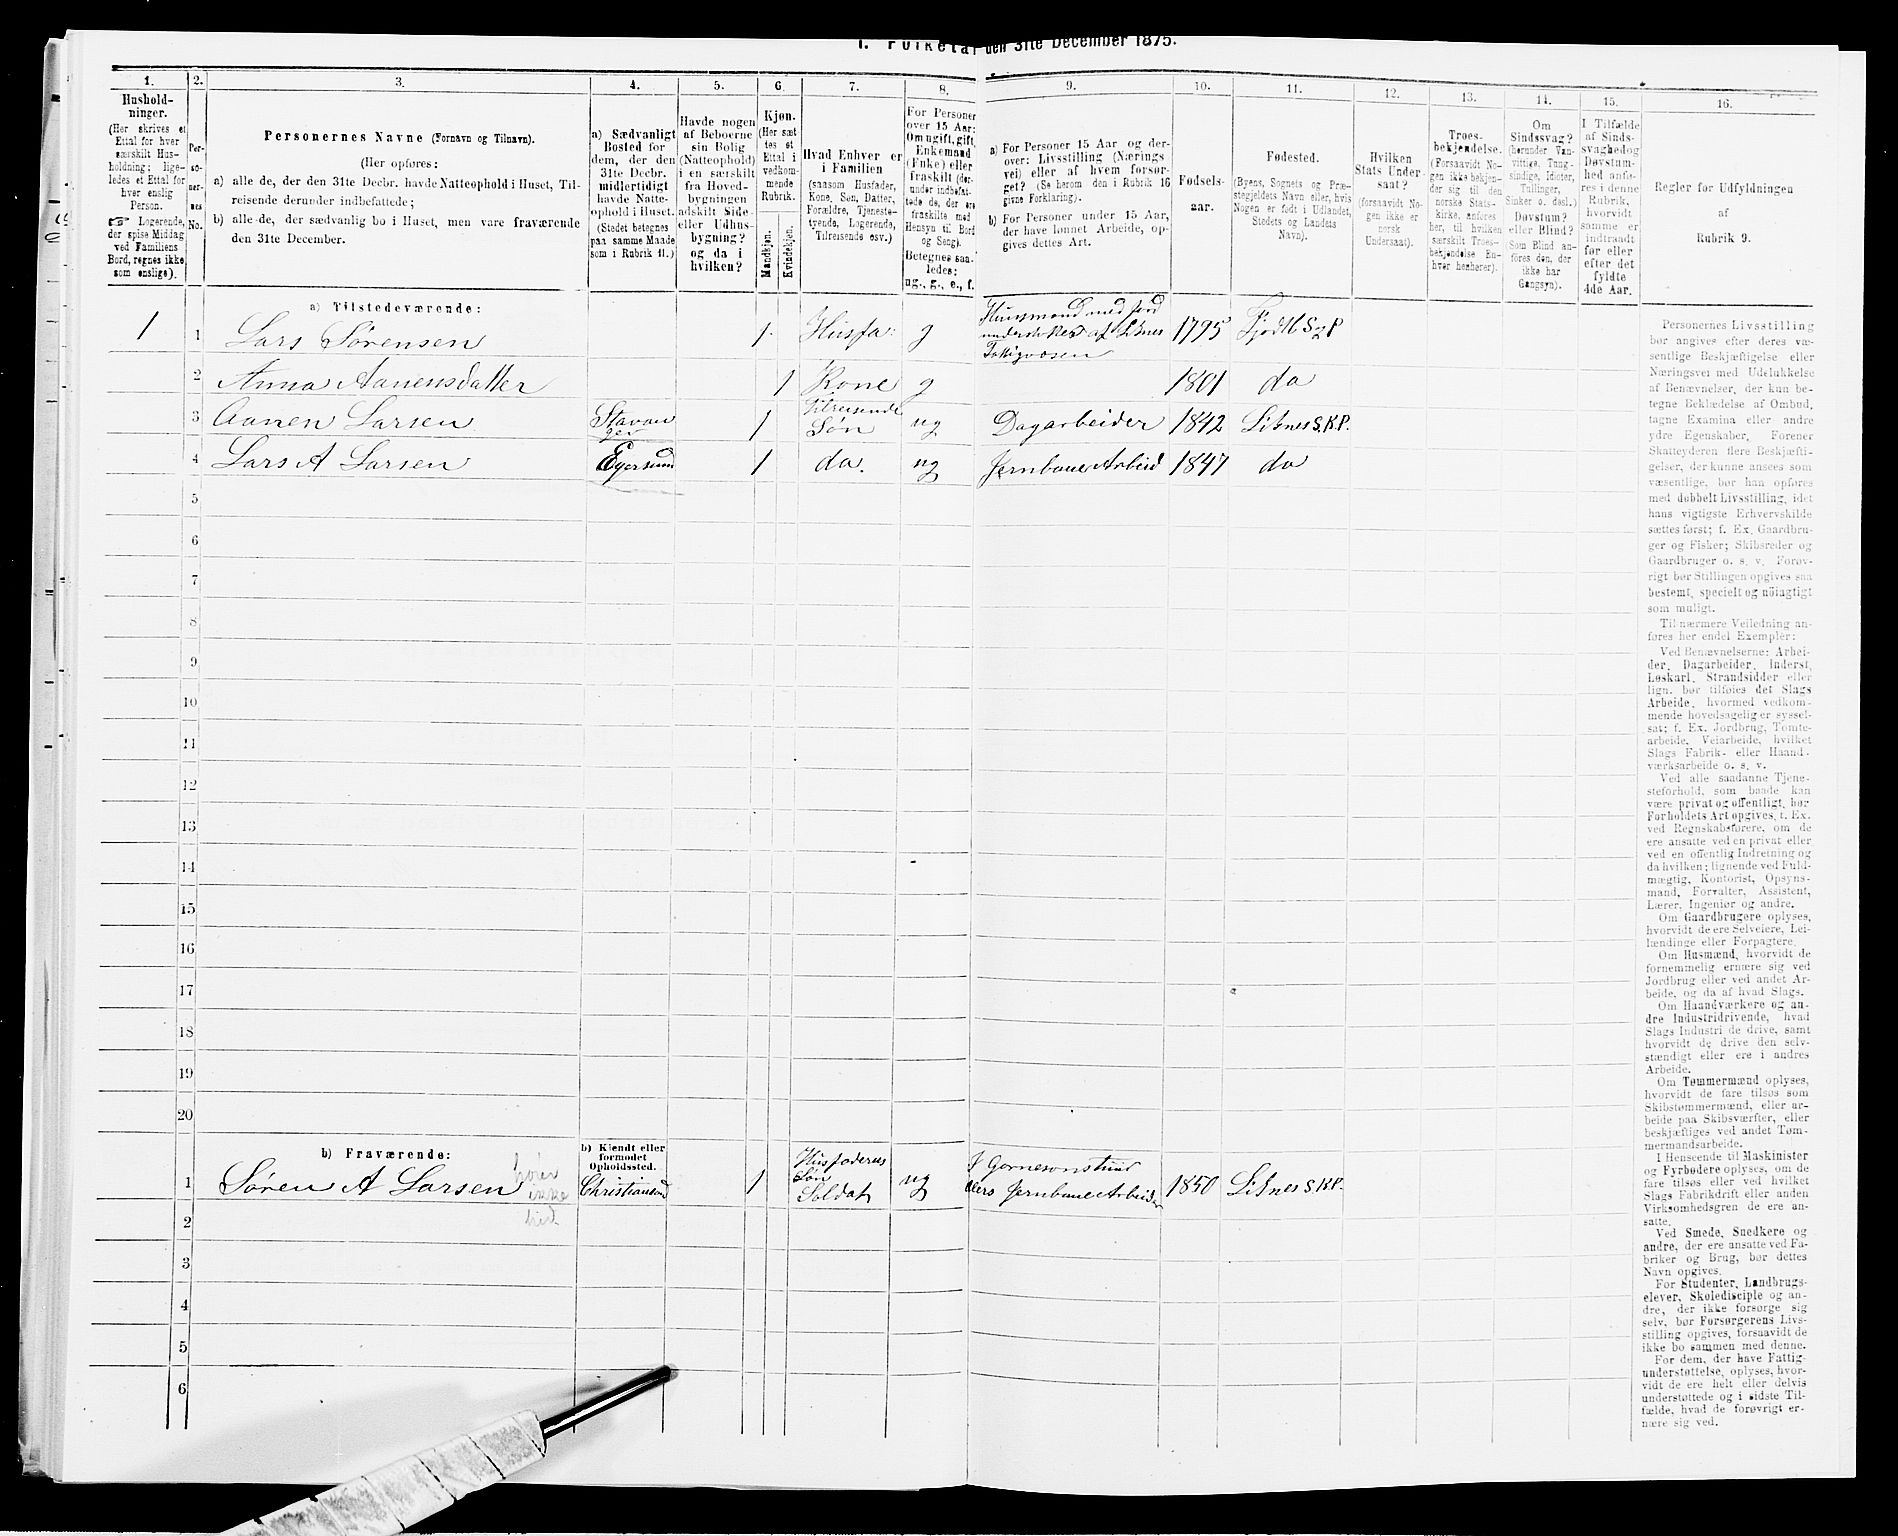 I. Folketal den 31te December 1875.
1. 2. 3. 4. 5. 6. 7. 8. 9. 10. 11. 12. 13. 14. 15. 16.
Hushold-
ninger.
(Her skrives et
Ettal for hver
særskilt Hus-
holdning; lige-
ledes et Ettal for
hver enslig
Person.
☞ Logerende,
der spise Middag
ved Familiens
Bord, regnes ikke
som enslige).
Per-
so-
ner-
nes
No.
Personernes Navne (Fornavn og Tilnavn).
(Her opføres:
a) alle de, der den 31te Decbr. havde Natteophold i Huset, Til-
reisende derunder indbefattede;
b) alle de, der sædvanlig bo i Huset, men vare fraværende
den 31te December.
a) Sædvanligt
Bosted for
dem, der den
31te Decbr.
midlertidigt
havde Natte-
ophold i Huset.
(Stedet betegnes
paa samme Maade
som i Rubrik 11.)
Havde nogen
af Beboerne
sin Bolig
(Natteophold)
i en særskilt
fra Hoved-
bygningen
adskilt Side-
eller Udhus-
bygning?
og da i
hvilken?
Kjøn.
(Her sæt
tes et
Ettal i
vedkom-
mende
Rubrik.
Mandkjøn.
Kvindekjøn.
Hvad Enhver er
i Familien
(saasom Husfader,
Kone, Søn, Datter,
Forældre, Tjeneste-
tyende, Logerende,
Tilreisende osv.)
For Personer
over 15 Aar:
Om ugift, gift,
Enkemand
(Enke) eller
fraskilt (der-
under indbefat-
tede de, der ere
fraskilte med
Hensyn til Bord
og Seng).
Betegnes saa-
ledes:
ug., g., e., f.
a) For Personer 15 Aar og der-
over: Livsstilling (Nærings
vei) eller af hvem forsør-
get? (Se herom den i Rubrik 16
givne Forklaring).
b) For Personer under 15 Aar,
der have lønnet Arbeide, op-
gives dettes Art.
Fødsels-
aar.
Fødested.
(Byens, Sognets og Præ-
stegjeldets Navn eller, hvis
Nogen er født i Udlandet,
Stedets og Landets
Navn).
Hvilken
Stats Under-
saat?
(forsaavidt No-
gen ikke er
norsk
Undersaat).
Troes-
bekjendelse.
(Forsaavidt No-
gen ikke bekjen-
der sig til den
norske Stats-
kirke, anføres
her, til hvilken
særskilt Troes-
bekjendelse En-
hver henhører).
Om
Sindssvag?
(herunder Van-
vittige, Tung-
sindige, Idioter,
Tullinger,
Sinker o. desl.)
Døvstum?
eller Blind?
(Som Blind an-
føres den, der
ikke har
Gangsyn).
I Tilfælde
af Sinds-
svaghed og
Døvstum-
hed anfø-
res i denne
Rubrik,
hvorvidt
samme er
indtraadt
før eller
efter det
fyldte
4de Aar.
Regler for Udfyldningen
af
Rubrik 9.
a) Tilstedeværende:
1 1 Lars Sørensen 1 Husfa: g Huusmand med Jord understøttes af Lisnes Fattigvæsen 1795 Fjodtl S & P
2 Anna Aanensdatter 1 Kone g 1801 do
3 Aanen Larsen Stavanger 1 Tilreisende Søn ug Dagarbeider 1842 Lisnes S. & P.
4 Lars A Larsen Egersund 1 do. ug Jernbane Arbeid 1847 do
5
6
7
8
9
10
11
12
13
14
15
16
17
18
19
20
b) Fraværende:
b) Kjendt eller
formodet
Opholdssted.
1 Søren A Larsen hører ikke hid Christiansand 1 Husfaderens Søn Soldat ug J Garnesonstund ellers Jernbane Arbeider 1850 Lisnes S. & P.
2
3
4
5
6
Personernes Livsstilling
bør angives efter deres væ-
sentlige Beskjæftigelse eller
Næringsvei med Udelukkelse
af Benævnelser, der kun be-
tegne Beklædelse af Ombud,
tagne Examina eller andre
ydre Egenskaber. Forener
Skatteyderen flere Beskjæfti-
gelser, der kunne ansees som
væsentlige, bør han opføres
med dobbelt Livsstilling, idet
hans vigtigste Erhvervskilde
sættes først; f. Ex. Gaardbru-
ger og Fisker; Skibsreder og
Gaardbruger o. s. v. Forøv-
rigt bør Stillingen opgives saa
bestemt, specielt og nöiagtigt
som muligt.
Til nærmere Veiledning an-
føres her endel Exempler:
Ved Benævnelserne: Arbei-
der, Dagarbeider, Inderst,
Løskarl, Strandsidder eller
lign. bør tilføies det Slags
Arbeide, hvormed vedkom-
mende hovedsagelig er syssel-
sat; f. Ex. Jordbrug, Tomte-
arbeide, Veiarbeide, hvilket
Slags Fabrik- eller Haand-
værksarbeide o. s. v.
Ved alle saadanne Tjene-
steforhold, som baade kan
være privat og offentligt, bør
Forholdets Art opgives, t. Ex.
ved Regnskabsførere, om de
ere ansatte ved en privat eller
ved en offentlig Indretning og
da hvilken; lignende ved Fuld-
mægtig, Kontorist, Opsyns-
mand, Forvalter, Assistent,
Lærer, Ingeniør og andre.
Om Gaardbrugere oplyses,
hvorvidt de ere Selveiere, Lei-
lændinge eller Forpagtere.
Om Husmænd, hvorvidt de
fornemmelig ernære sig ved
Jordbrug eller ved andet Ar-
beide, og da af hvad Slags.
Om Haandværkere og an-
dre Industridrivende, hvad
Slags Industri de drive, samt
hvorvidt de drive den selv-
stændigt eller ere i andres
Arbeide.
Om Tømmermænd oplyses,
hvorvidt de fare tilsøs som
Skibstømmermænd, eller ar-
beide paa Skibsværfter, eller
beskjæftiges ved andet Tøm-
mermandsarbeide.
I Henseende til Maskinister
og Fyrbødere oplyses, om de
fare tilsøs eller ved hvilket
Slags Fabrikdrift eller anden
Virksomhedsgren de ere an-
satte.
Ved Smede, Snedkere og
andre, der ere ansatte ved Fa-
briker og Brug, bør dettes
Navn opgives.
For Studenter, Landbrugs-
elever, Skoledisciple og an-
dre, der ikke forsørge sig
selv, bør Forsørgerens Livs-
stilling opgives, forsaavidt de
ikke bo sammen med denne.
For dem, der have Fattig-
understøttelse, oplyses, hvor-
vidt de ere helt eller delvis
understøttede og i sidste Til-
fælde, hvad de forøvrigt er-
nære sig ved.